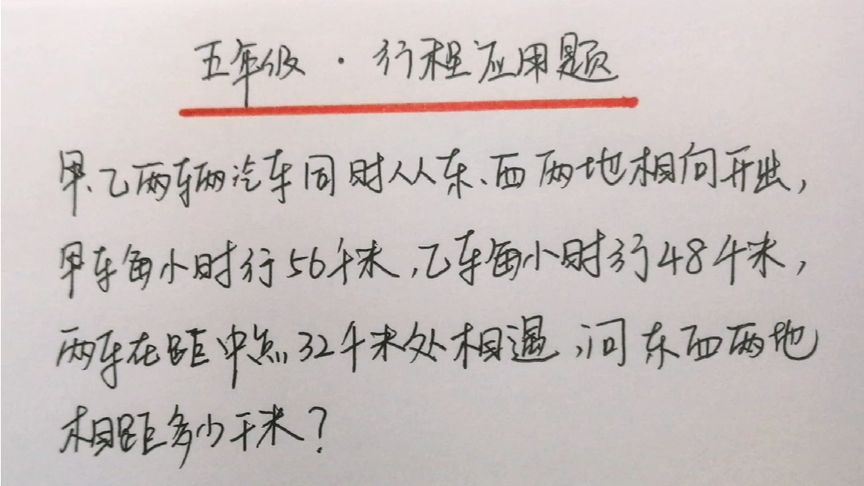 五年级·行程应用题
甲、乙两辆汽车同时从东、西两地相向开出,
甲车每小时行56千米,乙车每小时行48千米,
两车在距中点32千米处相遇,问东西两地
相距多少千米?